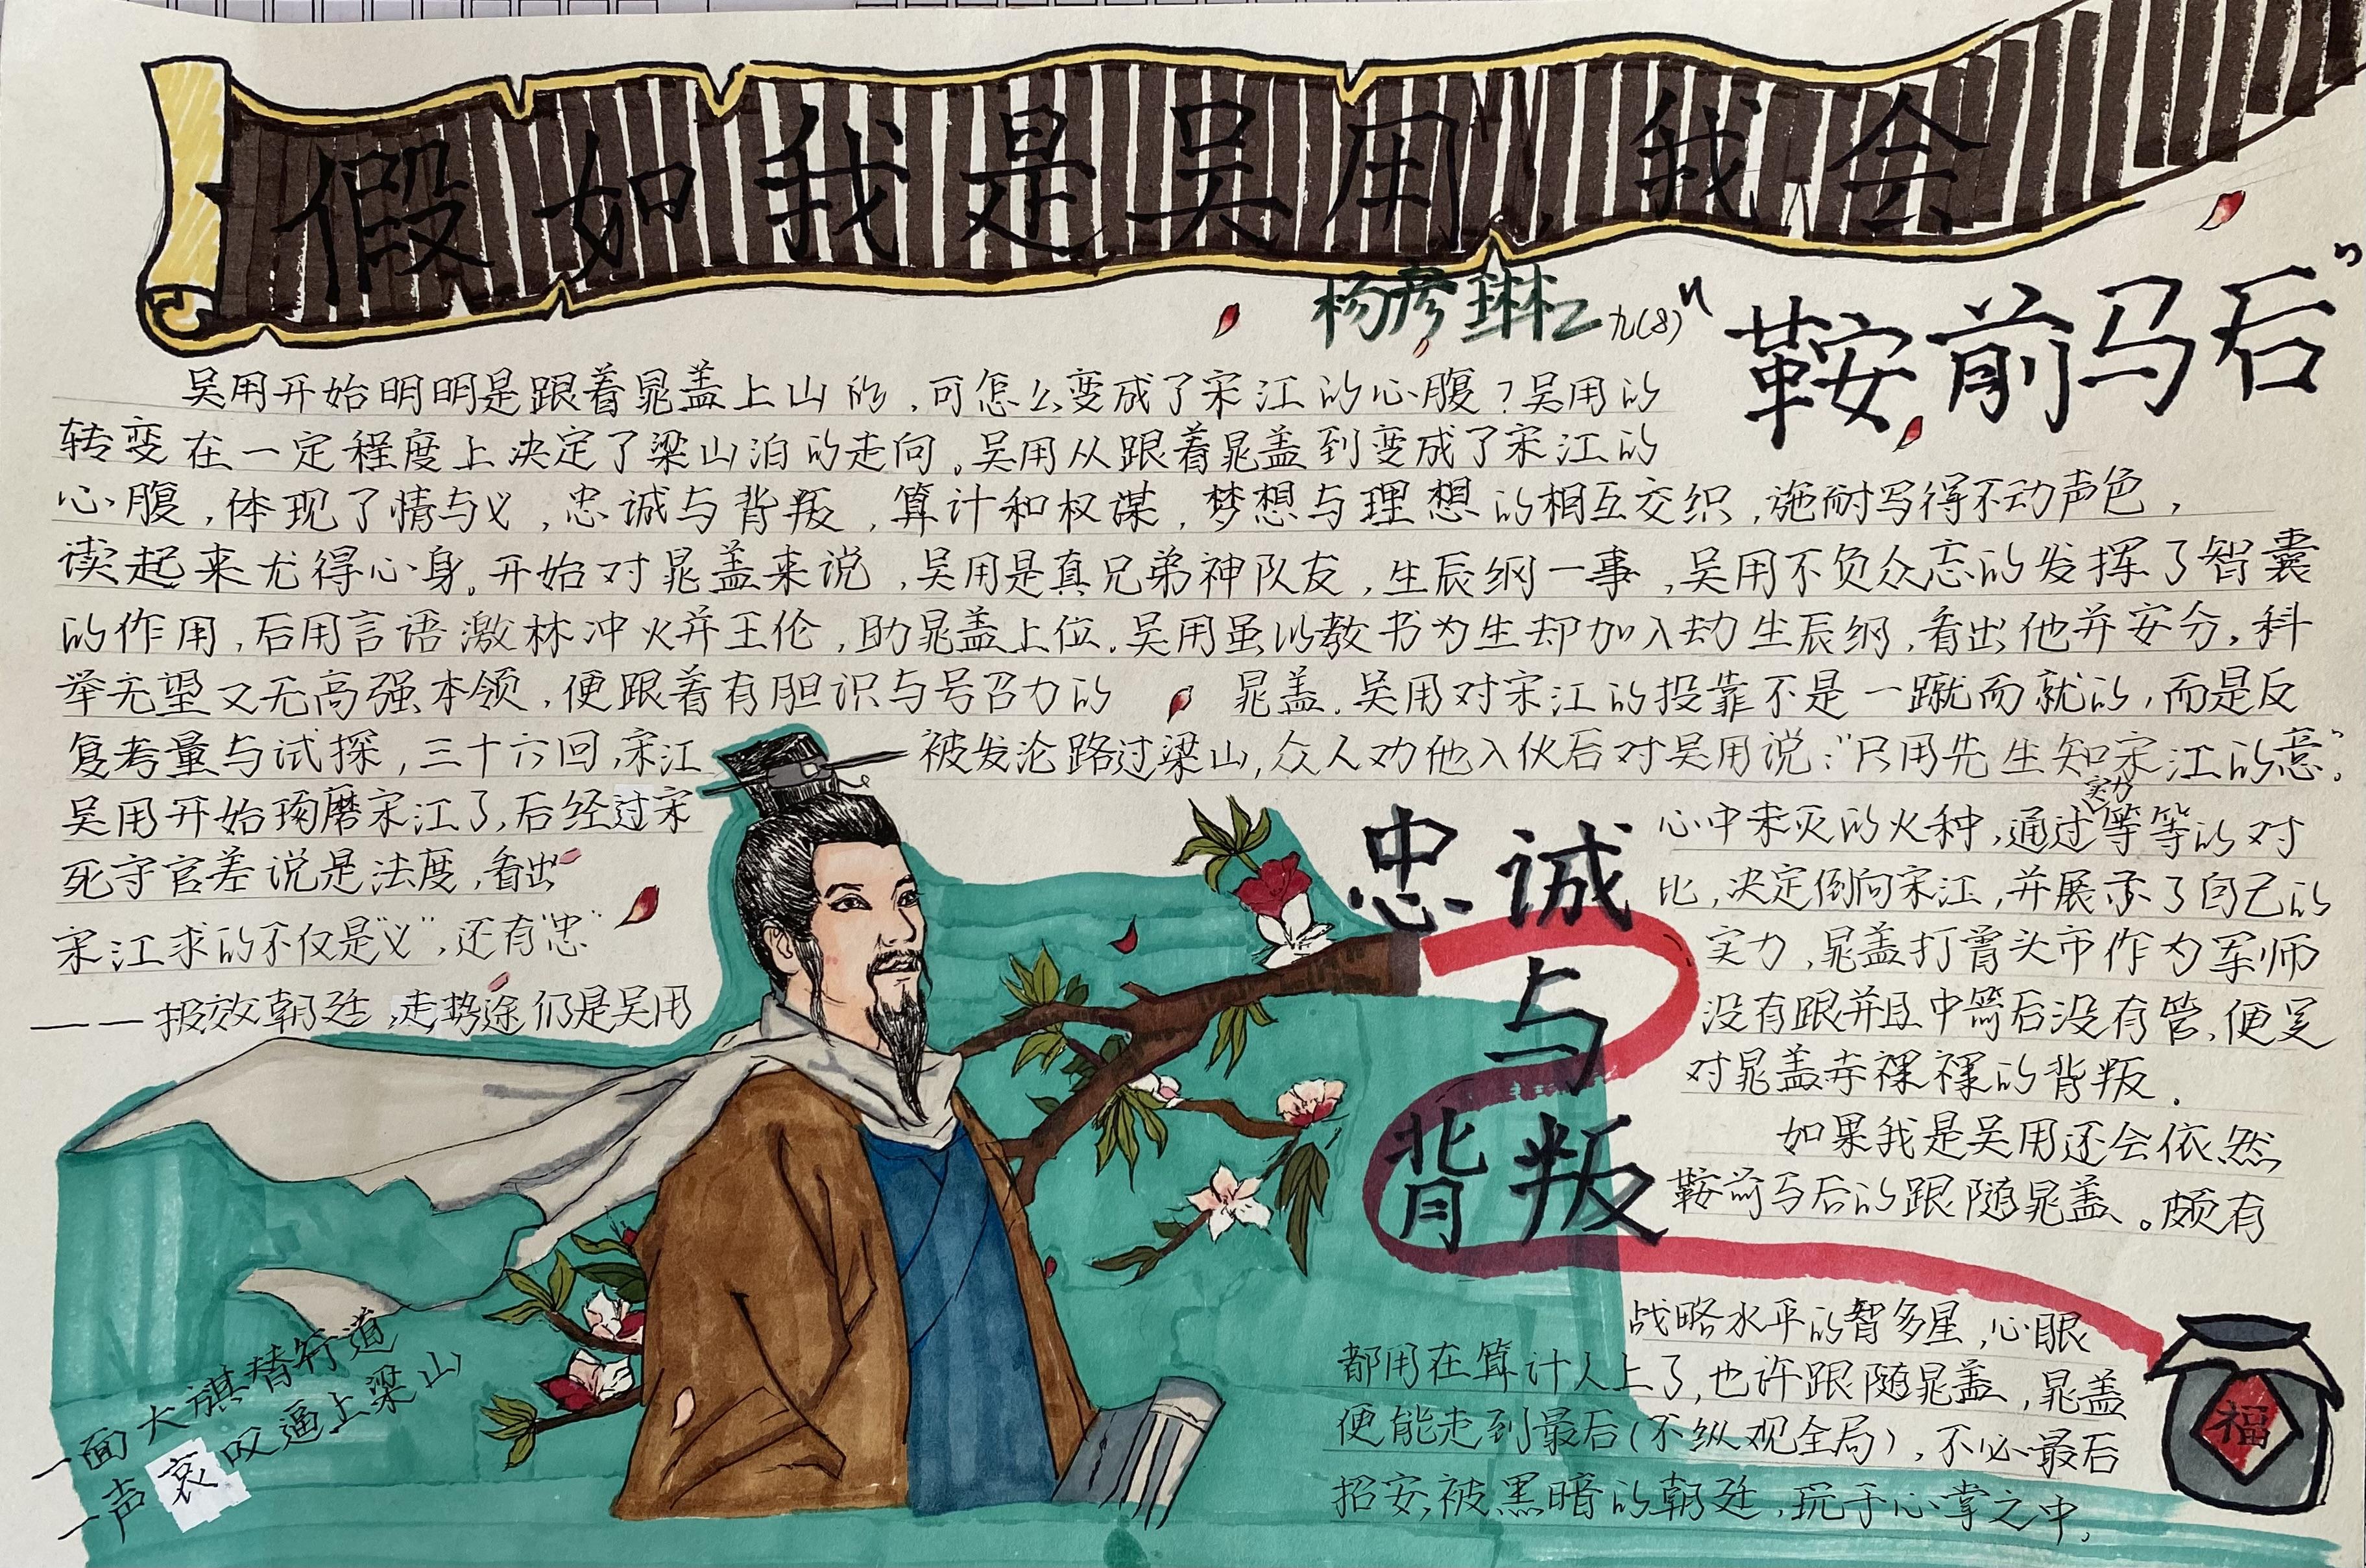 假如我是吴用,我会
杨彦琳 九(8)
"鞍前马后"
吴用开始明明是跟着晁盖上山的,可怎么变成了宋江的心腹?吴用的
转变在一定程度上决定了梁山泊的走向。吴用从跟着晁盖到变成了宋江的
心腹,体现了情与义,忠诚与背叛,算计和权谋,梦想与理想的相互交织,施耐写得不动声色,
读起来尤得心身。开始对晁盖来说,吴用是真兄弟神队友,生辰纲一事,吴用不负众忘的发挥了智囊
的作用,后用言语激林冲火并王伦,助晁盖上位.吴用虽以教书为生却加入劫生辰纲,看出他并安分,科
举无望又无高强本领,便跟着有胆识与号召力的 晁盖.吴用对宋江的投靠不是一蹴而就的,而是反
复考量与试探,三十六回,宋江 被发沦路过梁山,众人劝他入伙后对吴用说:"只用先生知宋江的意".
吴用开始琢磨宋江了,后经过宋
死守官差说是法度,看出
宋江求的不仅是"义",还有"忠"
——报效朝廷,走势途仍是吴用
忠诚
与
背叛
心中未灭的火种,通过实力等等的对
比,决定倒向宋江,并展示了自己的
实力,晁盖打曾头市作为军师
没有跟并且中箭后没有管,便是
对晁盖赤裸裸的背叛.
如果我是吴用还会依然
鞍前马后的跟随晁盖。颇有
战略水平的智多星,心眼
都用在算计人上了,也许跟随晁盖,晁盖
便能走到最后(不纵观全局),不必最后
招安,被黑暗的朝廷,玩于心掌之中,
一面大旗替行道
一声哀叹逼上梁山
福